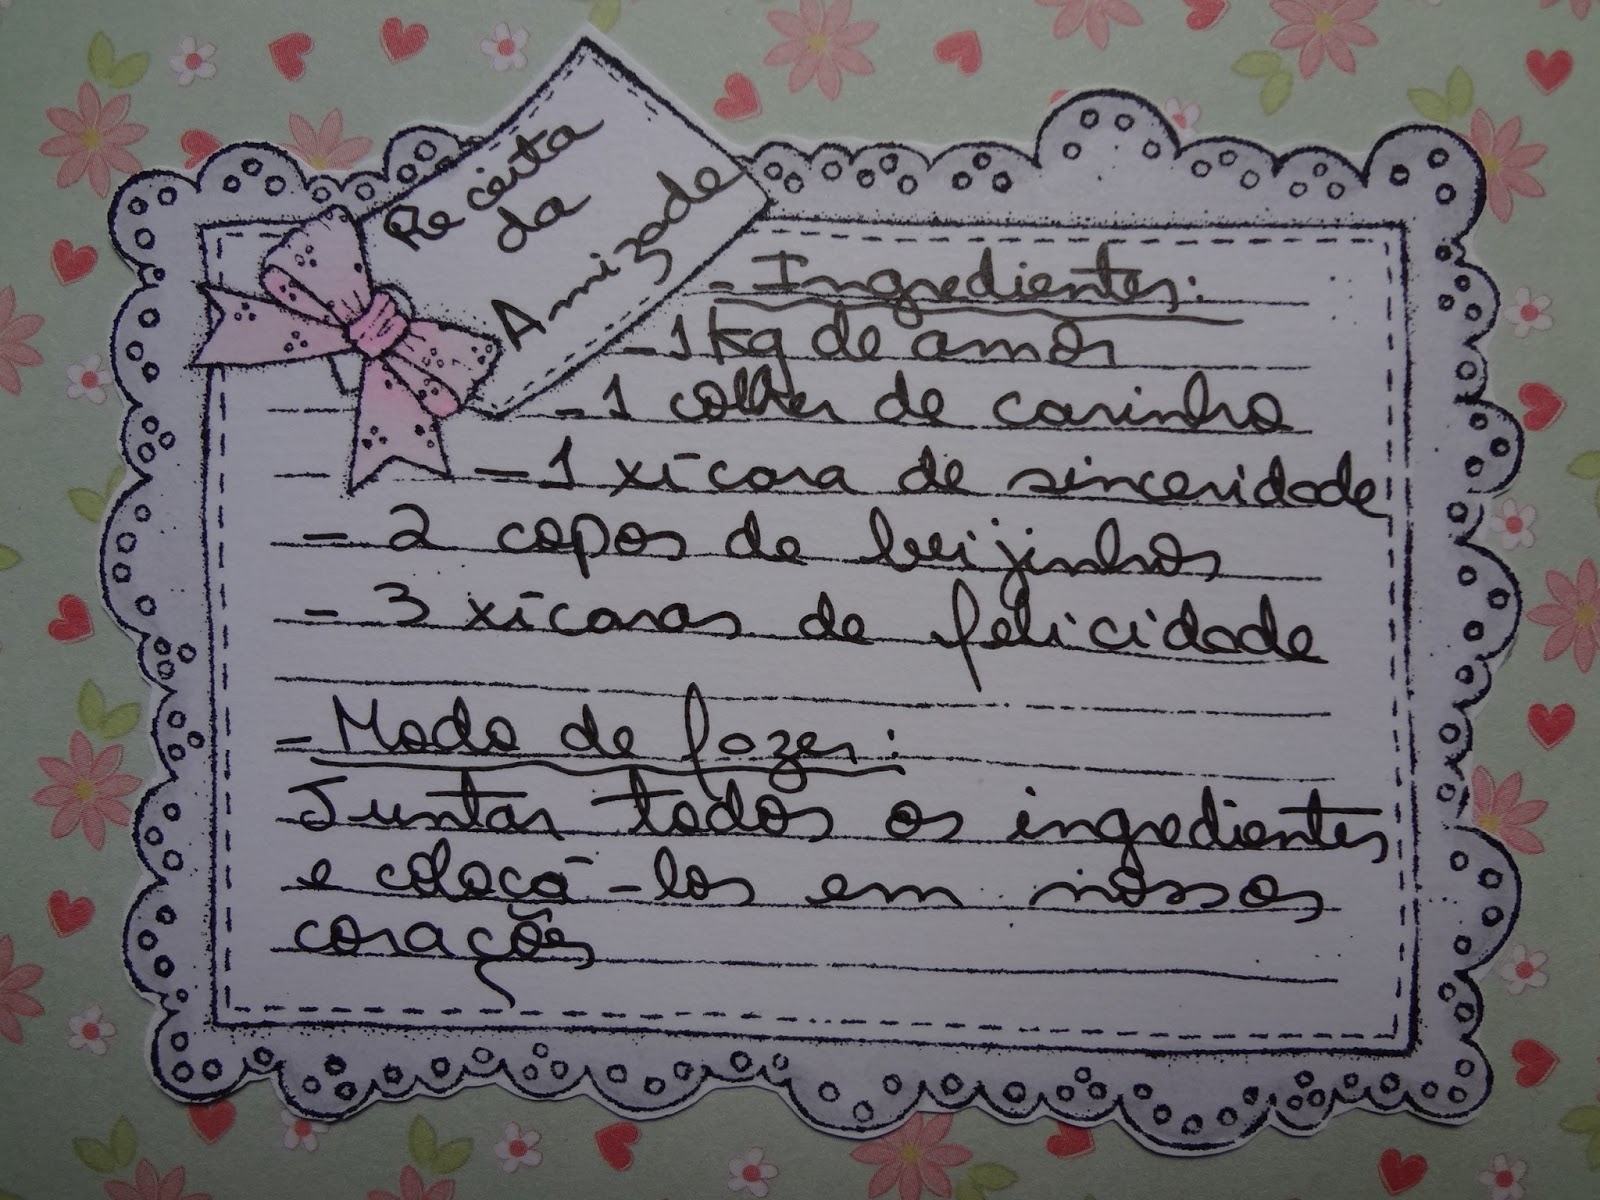 Receita
da
Amizade
- Ingredientes:
- 1 kg de amor
- 1 colher de carinho
- 1 xícara de sinceridade
- 2 copos de beijinhos
- 3 xícaras de felicidade
- Modo de fazer:
Juntar todos os ingredientes
e colocá-los em nossos
corações